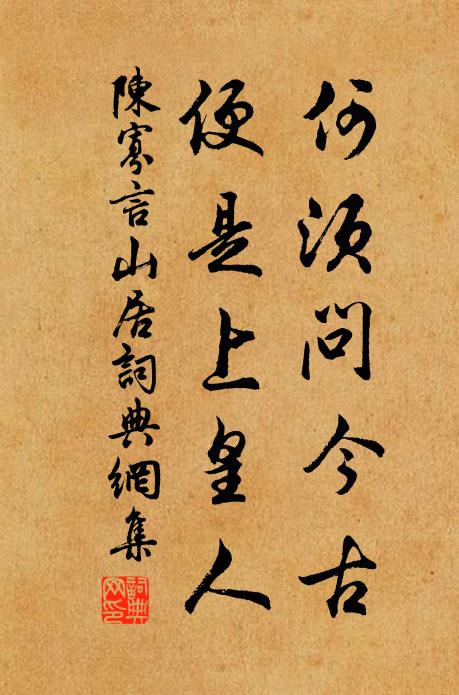 何須問今古
便是上皇人
陳寡言山居詞典網集
詞典網印